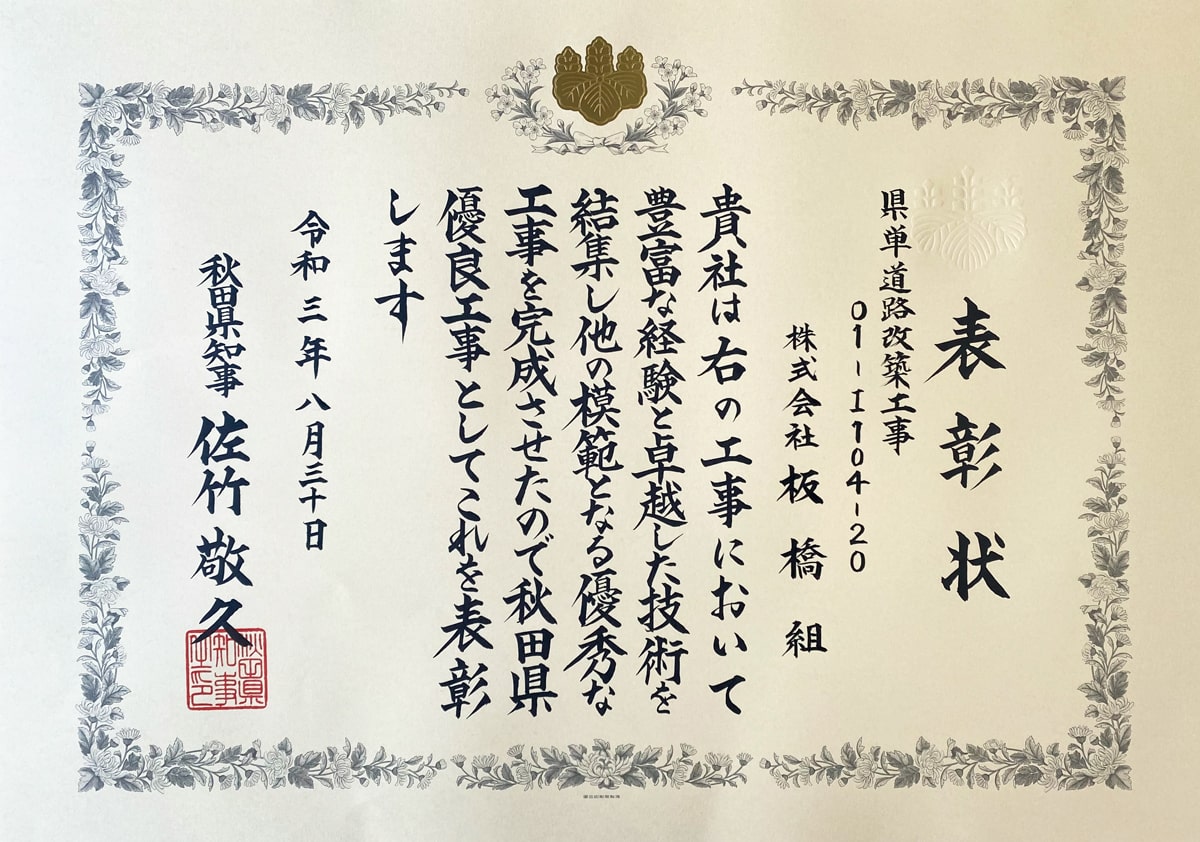 表彰状
県単道路改築工事
01-I104-20
株式会社 板橋組
貴社は右の工事において
豊富な経験と卓越した技術を
結集し他の模範となる優秀な
工事を完成させたので秋田県
優良工事としてこれを表彰
します
令和三年八月三十日
秋田県知事 佐竹敬久